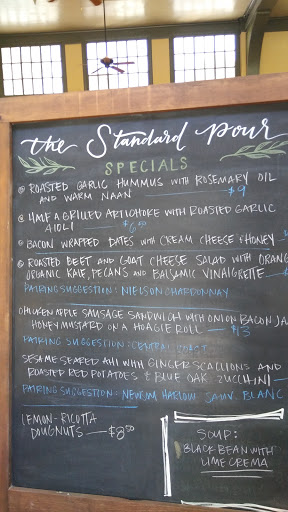 the Standard pour
SPECIALS
ROASTED GARLIC HUMMUS WITH ROSEMARY OIL
AND WARM NAAN — $9
HALF A GRILLED ARTICHOKE WITH ROASTED GARLIC
AIOLI — $6.00
BACON WRAPPED DATES WITH CREAM CHEESE & HONEY —
ROASTED BEET AND GOAT CHEESE SALAD WITH ORANG
ORGANIC KALE, PECANS AND BALSAMIC VINAIGRETTE —
PAIRING SUGGESTION: NIELSON CHARDONNAY
CHICKEN APPLE SAUSAGE SANDWICH WITH ONION BACON JA
HONEY MUSTARD ON A HOAGIE ROLL — $13
PAIRING SUGGESTION: COAST
SESAME SEARED AHI WITH GINGER SCALLIONS AND
ROASTED RED POTATOES & BLUE OAK ZUCCHINI —
PAIRING SUGGESTION: HARLOW SAUV. BLANC
LEMON-RICOTTA
DOUGNUTS — $8.00
SOUP:
BLACK BEAN WITH
LIME CREMA